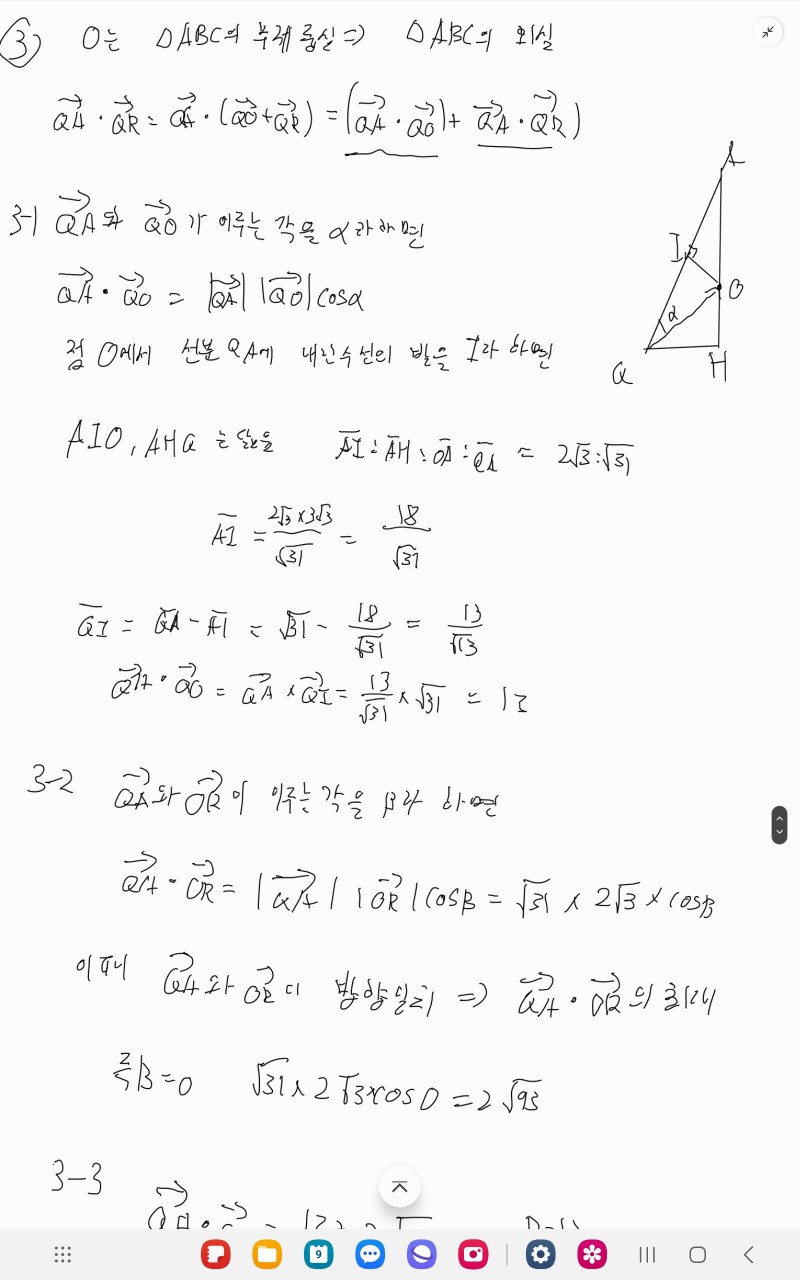 ③ O는 △ABC의 무게중심 ⇒ △ABC의 외심
QA→ · QR→ = QA→ · (QO→ + QR→) = (QA→ · QO→) + QA→ · QR→)
3-1 QA→와 QO→가 이루는 각을 α라 하면
QA→ · QO→ = |QA→| |QO→| cosα
점 O에서 선분 QA에 내린 수선의 발을 I라 하면
A
I
O
α
Q
H
AIO, AHQ는 닮음 AI : AH : OA : QA = 2√3 : √31
AI = 2√3 × 3√3 / √31 = 18 / √31
QI = QA - AI = √31 - 18/√31 = 13/√13
QA→ · QO→ = QA→ × QI→ = 13/√31 × √31 = 13
3-2 QA→와 OR→이 이루는 각을 β라 하면
QA→ · OR→ = |QA→| |OR→| cosβ = √31 × 2√3 × cosβ
이때 QA→와 OR→ 방향일치 ⇒ QA→ · OR→의 최대
즉 β = 0 √31 × 2√3 × cos0 = 2√93
3-3
9